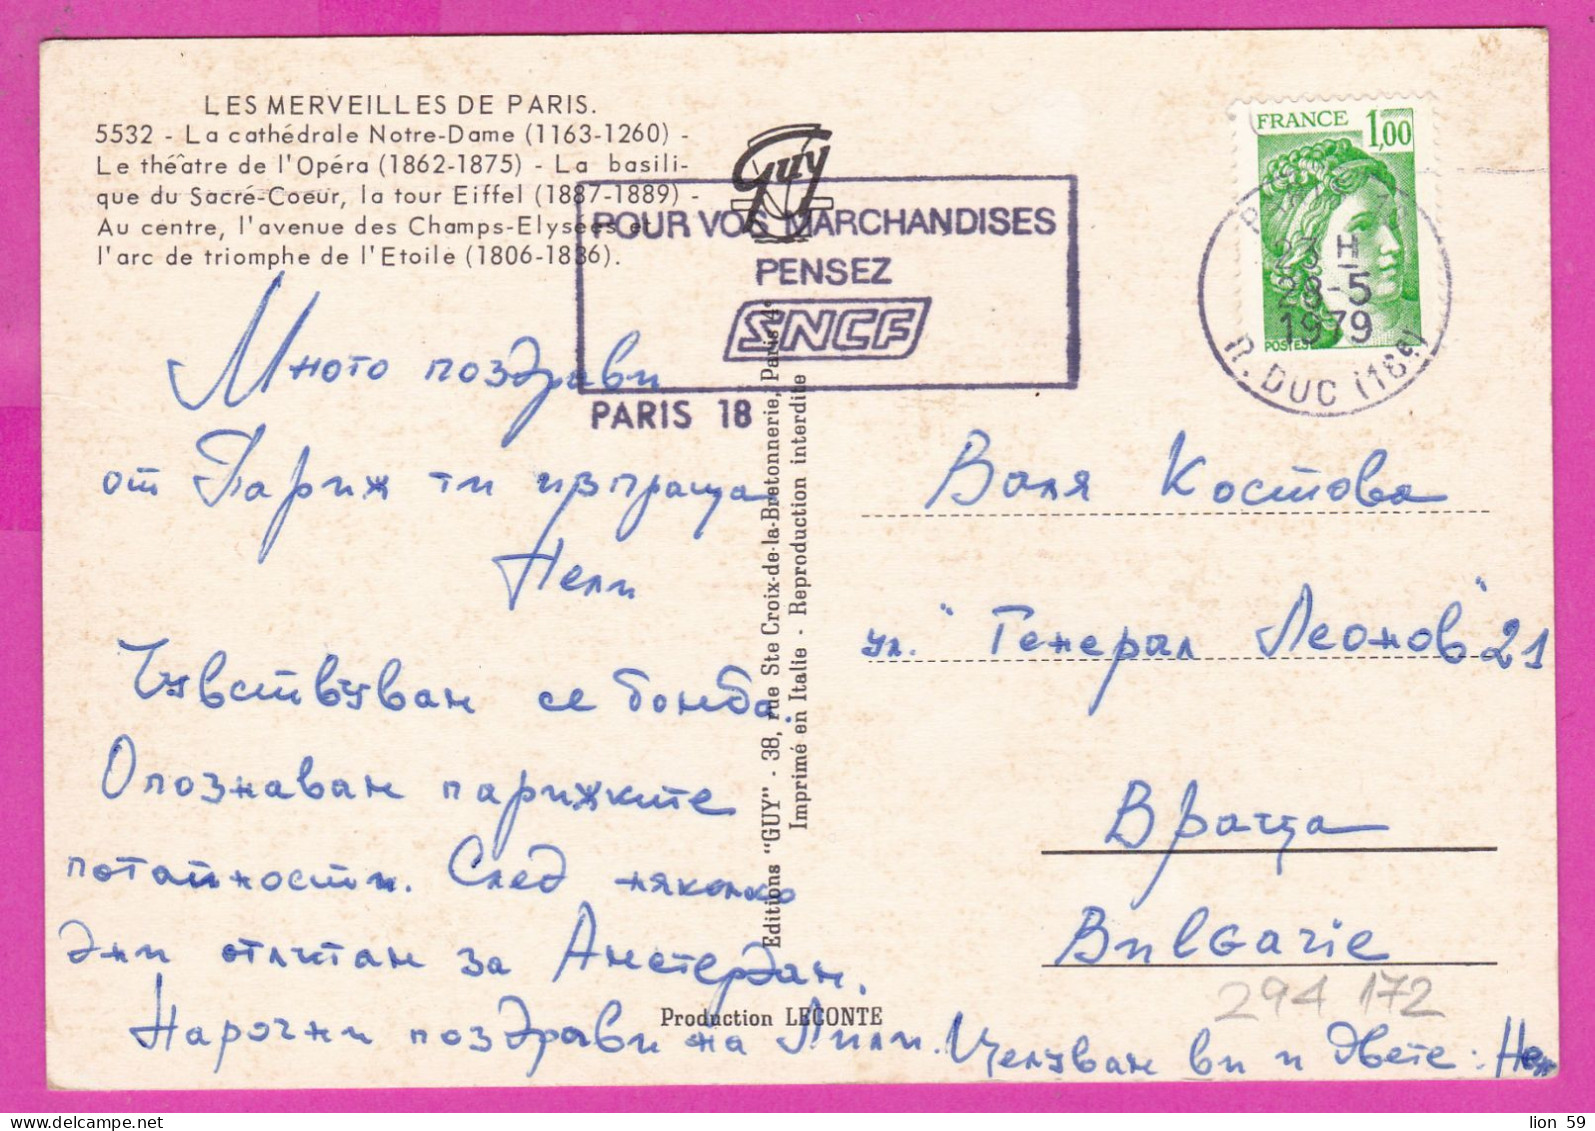 LES MERVEILLES DE PARIS.
5532 - La cathédrale Notre-Dame (1163-1260) -
Le théâtre de l'Opéra (1862-1875) - La basili-
que du Sacré-Coeur, la tour Eiffel (1887-1889) -
Au centre, l'avenue des Champs-Elysées et
l'arc de triomphe de l'Etoile (1806-1836).
Guy
POUR VOS MARCHANDISES
PENSEZ
SNCF
PARIS 18
FRANCE 1,00
POSTES
23 H
28-5
1979
R. DUC (18e)
Много поздрави
от Париж ти изпраща
Нели
Чувствувам се бомба.
Опознавам парижките
потайности. След няколко
дни отлитам за Амстердам.
Нарочни поздрави на Лили. Целувам ви и двете: Нели
Editions "GUY" - 38, rue Ste Croix-de-la-Bretonnerie, Paris 4e
Imprimé en Italie - Reproduction interdite
Production LECONTE
Валя Костова
ул. "Генерал Леонов" 21
Враца
Bulgarie
294 172
lion 59